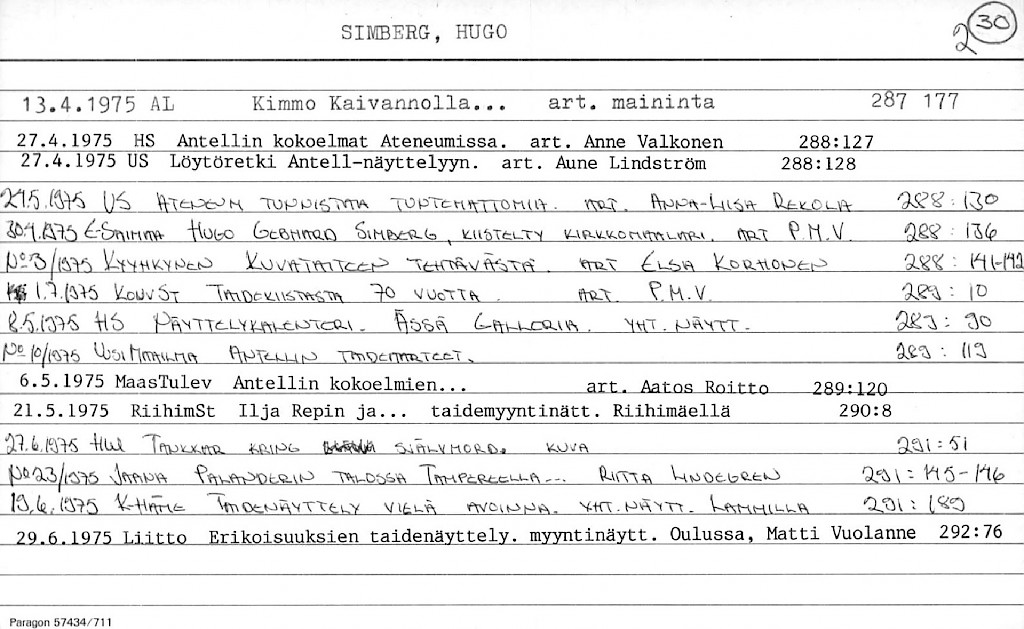 SIMBERG, HUGO
2 30
13.4.1975 AL Kimmo Kaivannolla... art. maininta 287 177
27.4.1975 HS Antellin kokoelmat Ateneumissa. art. Anne Valkonen 288:127
27.4.1975 US Löytöretki Antell-näyttelyyn. art. Aune Lindström 288:128
1975 US ATENEUM TUNNISTAA TUNTEMATTOMIA. ART. ANNA-LIISA REKOLA 288:130
30.4.1975 E-SAIMAA HUGO GERHARD SIMBERG, KIISTELTY KIRKKOMAALARI. ART P.M.V. 288:136
No 3/1975 KYYHKYNEN KUVATAITEEN TEHTÄVÄSTÄ. ART ELSA KORHONEN 288:141-142
1.7.1975 KOUVST TAIDEKIISTASTA 70 VUOTTA. ART. P.M.V. 289:10
8.5.1975 HS NÄYTTELYKALENTERI. ÄSSÄ GALLERIA. YHT. NÄYTT. 289:90
No 10/1975 UUSI MAAILMA ANTELLIN TAIDEAARTEET. 289:119
6.5.1975 MaasTulev Antellin kokoelmien... art. Aatos Roitto 289:120
21.5.1975 RiihimSt Ilja Repin ja... taidemyyntinätt. Riihimäellä 290:8
27.6.1975 Hbl TANKKAR KRING SJÄLVMORD. KUVA 291:51
No 23/1975 JAANA PALANDERIN TALOSSA TAMPEREELLA... RIITTA LINDEGREN 291:145-146
19.6.1975 K-HÄME TAIDENÄYTTELY VIELÄ AVOINNA. YHT. NÄYTT. LAMMILLA 291:189
29.6.1975 Liitto Erikoisuuksien taidenäyttely. myyntinäytt. Oulussa, Matti Vuolanne 292:76
Paragon 57434/711